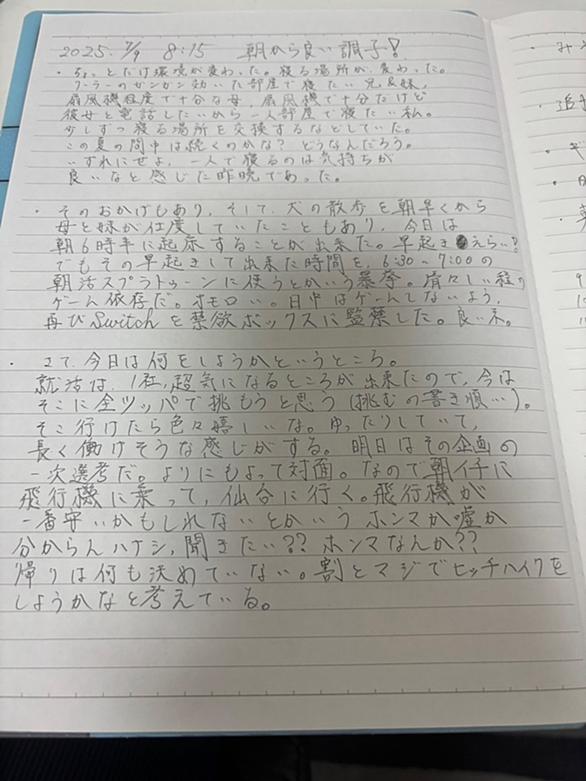 2025. 7/9 8:15 朝から良い調子!
・ちょっとだけ環境が変わった。寝る場所が、変わった。
クーラーのガンガン効いた部屋で寝たい兄&妹、
扇風機程度で十分な母、扇風機で十分だけど
彼女と電話したいから一人部屋で寝たい私。
少しずつ寝る場所を交換するなどしていた。
この夏の間中は続くのかな?どうなんだろう。
いずれにせよ、一人で寝るのは気持ちが
良いなと感じた昨晩であった。
・そのおかげもあり、そして、犬の散歩を朝早くから
母と妹が仕度していたこともあり、今日は
朝6時半に起床することが出来た。早起きえらい!
でもその早起きして出来た時間を、6:30~7:00の
朝活スプラトゥーンに使うとかいう暴挙。清々しい程の
ゲーム依存だ。オモロい。日中はゲームしないよう、
再びSwitchを禁欲ボックスに監禁した。良い末。
・さて、今日は何をしようかというところ。
就活は、1社、超気になるところが出来たので、今は
そこに全ツッパで挑もうと思う(挑むの書き順…)。
そこ行けたら色々嬉しいな。ゆったりしていて、
長く働けそうな感じがする。明日はその企画の
一次選考だ。よりにもよって対面。なので朝イチに
飛行機に乗って、仙台に行く。飛行機が
一番安いかもしれないとかいうホンマか嘘か
分からんハナシ、聞きたい??ホンマなんか??
帰りは何も決めていない。割とマジでヒッチハイクを
しようかなと考えている。
み
追